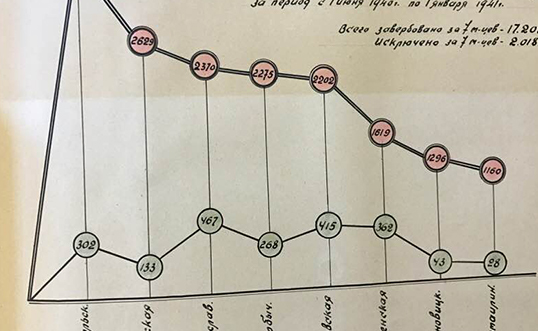 за период с 1 июня 1940г. по 1 января 1941г.
Всего завербовано за 7 м-цев - 17.20
Исключено за 7 м-цев - 2.018
2629
2370
2275
2202
1619
1296
1160
302
133
467
268
415
362
43
28
ская
вская
енская